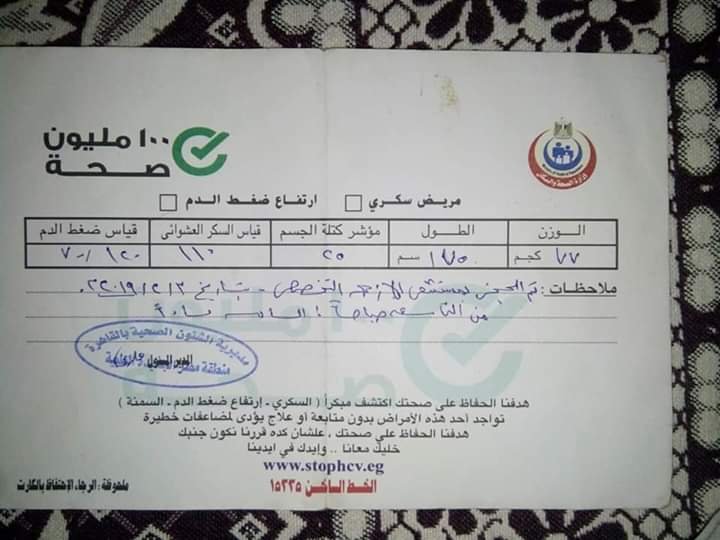 ١٠٠ مليون
صحة
وزارة الصحة والسكان
مريض سكري ارتفاع ضغط الدم
الوزن الطول مؤشر كتلة الجسم قياس السكر العشوائى قياس ضغط الدم
٧٧ كجم ١٧٥ سم ٢٥ ١١٦ ١٢٠/٧٠
ملاحظات: تم الحجز بمستشفى التخصصى - بتاريخ ٢٠١٩/٢/٣
من التاسعة صباحاً
مديرية الشئون الصحية بالقاهرة
المدير المسئول
منطقة
هدفنا الحفاظ على صحتك اكتشف مبكراً ( السكري - إرتفاع ضغط الدم - السمنة )
تواجد أحد هذه الأمراض بدون متابعة أو علاج يؤدى لمضاعفات خطيرة
هدفنا الحفاظ علي صحتك ، علشان كده قررنا نكون جنبك
خليك معانا .. وإيدك في ايدينا
www.stophcv.eg
الخط الساخن ١٥٣٣٥
ملحوظة : الرجاء الإحتفاظ بالكارت